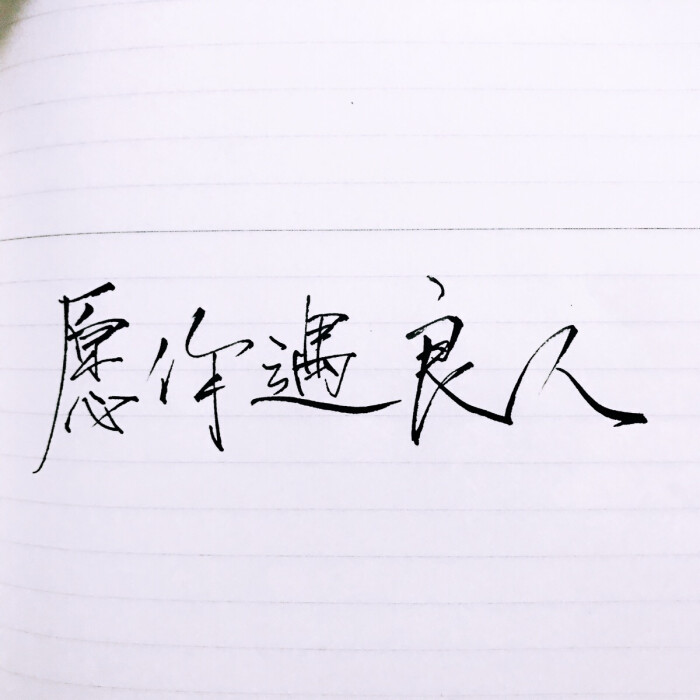 愿你遇良人